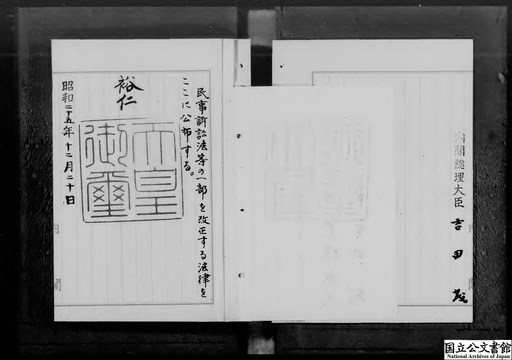 民事訴訟法等の一部を改正する法律を
ここに公布する。
裕仁
天皇
御璽
昭和二十五年十二月二十日
内閣
内閣総理大臣 吉田茂
国立公文書館
National Archives of Japan